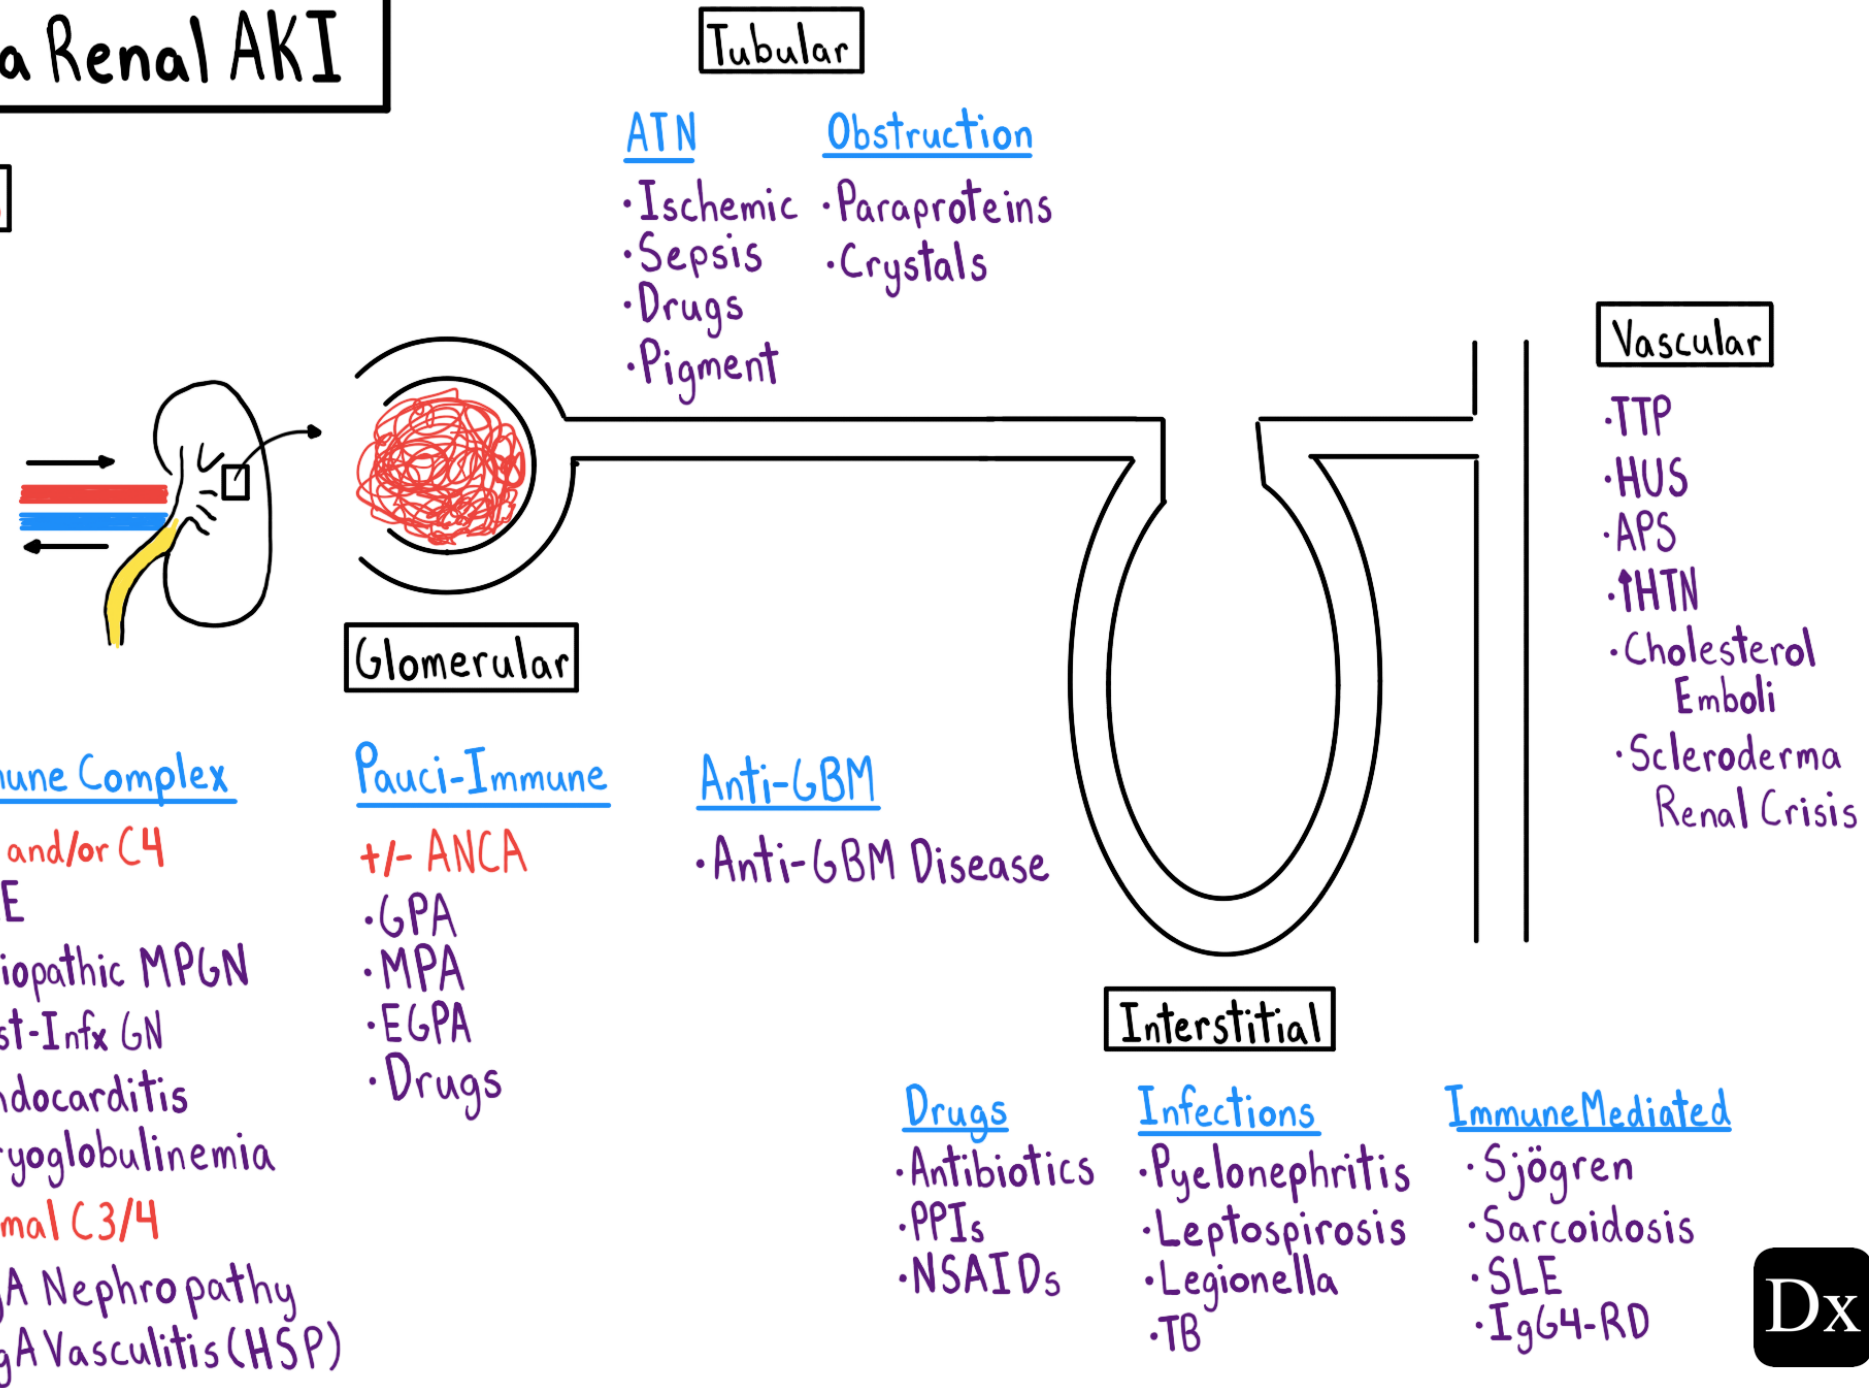 a Renal AKI
Tubular
ATN
·Ischemic
·Sepsis
·Drugs
·Pigment
Obstruction
·Paraproteins
·Crystals
Vascular
·TTP
·HUS
·APS
·↑HTN
·Cholesterol
Emboli
·Scleroderma
Renal Crisis
Glomerular
une Complex
and/or C4
E
iopathic MPGN
st-Infx GN
ndocarditis
ryoglobulinemia
mal C3/4
gA Nephropathy
gA Vasculitis (HSP)
Pauci-Immune
+/- ANCA
·GPA
·MPA
·EGPA
·Drugs
Anti-GBM
·Anti-GBM Disease
Interstitial
Drugs
·Antibiotics
·PPIs
·NSAIDs
Infections
·Pyelonephritis
·Leptospirosis
·Legionella
·TB
Immune Mediated
·Sjögren
·Sarcoidosis
·SLE
·IgG4-RD
Dx